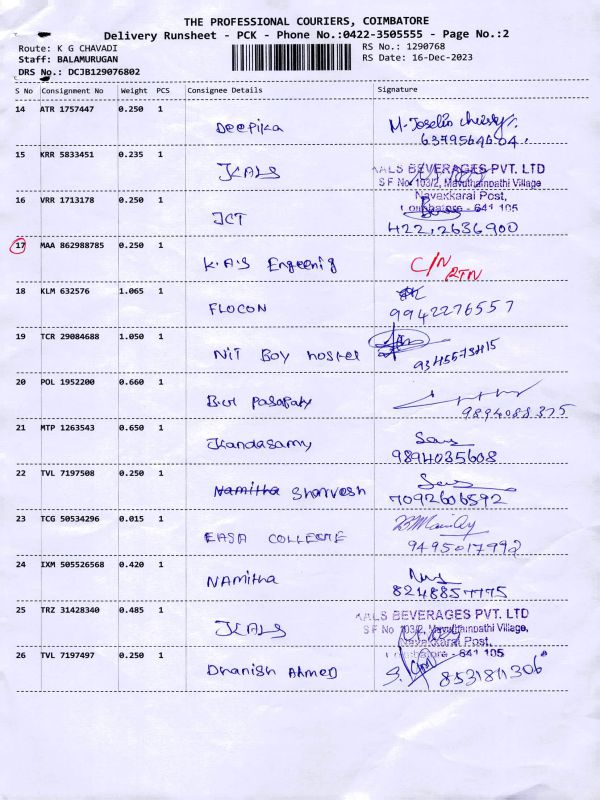 THE PROFESSIONAL COURIERS, COIMBATORE
Delivery Runsheet - PCK - Phone No.:0422-3505555 - Page No.:2
Route: K G CHAVADI
RS No.: 1290768
Staff: BALAMURUGAN
RS Date: 16-Dec-2023
DRS No.: DCJB129076802
S No Consignment No Weight PCS Consignee Details Signature
14 ATR 1757447 0.250 1
Deepika
15 KRR 5833451 0.235 1
JKALS
KALS BEVERAGES PVT. LTD
S F No 103/2, Mavuthainpathi Village
Navakkarai Post,
Coimbatore - 641 105
16 VRR 1713178 0.250 1
JCT
422,2636900
17 MAA 862988785 0.250 1
K.A.S
C/N
RTN
18 KLM 632576 1.065 1
FLOCON
9942276557
19 TCR 29084688 1.050 1
NIT Boy hostel
20 POL 1952200 0.660 1
9894088375
21 MTP 1263543 0.650 1
Kandasamy
9894035608
22 TVL 7197508 0.250 1
Namitha Sharvesh
7092606592
23 TCG 50534296 0.015 1
EASA COLLEGE
9495017992
24 IXM 505526568 0.420 1
NAmitha
25 TRZ 31428340 0.485 1
JKALS
KALS BEVERAGES PVT. LTD
S F No 103/2, Mavuthainpathi Village,
Navakkarai Post,
Coimbatore - 641 105
26 TVL 7197497 0.250 1
Dhanish Ahmed
8531811306